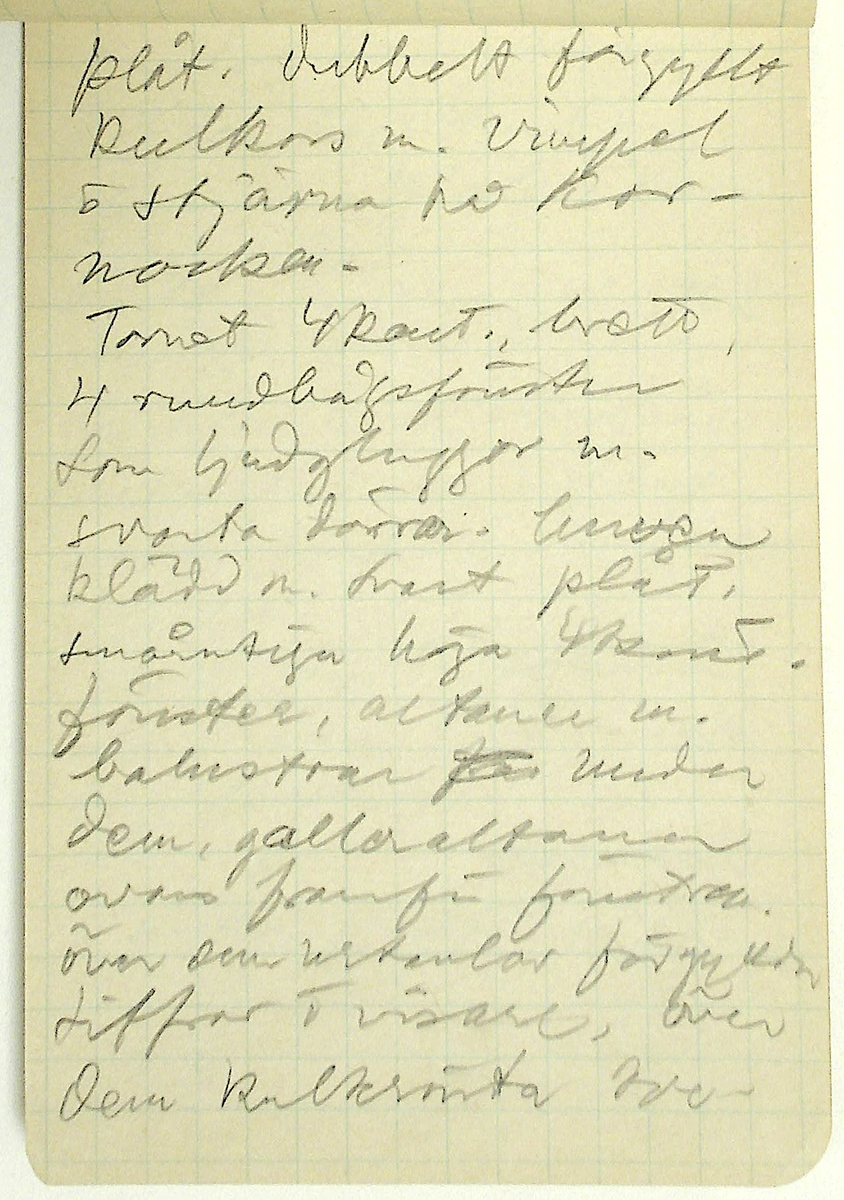 plåt. Dubbelt förgyllt
kulkors m. vimpel
o stjärna på kor-
nocken.
Tornet 4kant., brett,
4 rundbågsfönster
som ljudgluggor m.
svarta dörrar. huven
klädd m. svart plåt.
höga 4kant.
fönster, altaner m.
balustrar under
dem, galleraltaner
ovans framför fönstren.
över dem urtavlor förgyllda
siffror o visare, över
dem kulkrönta